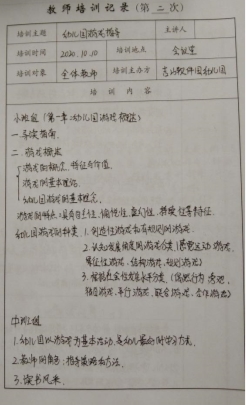 教师培训记录（第二次）
培训主题 幼儿园游戏指导 主讲人
培训时间 2020.10.10 培训地点 会议室
培训对象 全体教师 培训主办方 幼儿园
培训内容
小班组（第一章：幼儿园游戏概述）
一、导读指南。
二、游戏概述
游戏的概念、特征与价值
游戏的基本理论
幼儿园游戏的基本概念
游戏的特点：具有自主性、愉悦性、等特征。
幼儿园游戏的种类 1.创造性游戏和有规则的游戏。
2.认知发展角度的游戏分类（感觉运动游戏、
象征性游戏、结构游戏、规则游戏）
3.依据社会性发展水平分类（偶然行为、旁观、
独自游戏、平行游戏、联合游戏、合作游戏）
中班组
1.幼儿园以游戏为基本活动，是幼儿最好的学习方式。
2.教师的角色：指导策略和方法。
3.读书